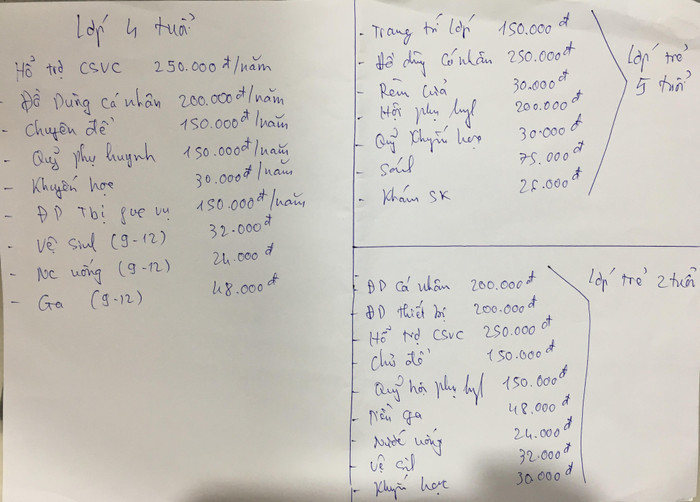 Lớp 4 tuổi
Hỗ trợ CSVC 250.000đ/năm
- Đồ Dùng cá nhân 200.000đ/năm
- Chuyên đề 150.000đ/năm
- Quỹ phụ huynh 150.000đ/năm
- Khuyến học 30.000đ/năm
- ĐD Tbị phục vụ 150.000đ/năm
- Vệ sinh (9-12) 32.000đ
- Nc uống (9-12) 24.000đ
- Ga (9-12) 48.000đ
- Trang trí lớp 150.000đ
- Đồ dùng cá nhân 250.000đ
- Rèm cửa 30.000đ
- Hội phụ huyh 200.000đ
- Quỹ khuyến học 30.000đ
- Sách 75.000đ
- Khám SK 25.000đ
Lớp trẻ
5 tuổi
- ĐD cá nhân 200.000đ
- ĐD thiết bị 200.000đ
- Hỗ trợ CSVC 250.000đ
- Chủ đề 150.000đ
- Quỹ hội phụ huyh 150.000đ
- Tiền ga 48.000đ
- Nước uống 24.000đ
- Vệ sinh 32.000đ
- Khuyến học 30.000đ
Lớp trẻ 2 tuổi